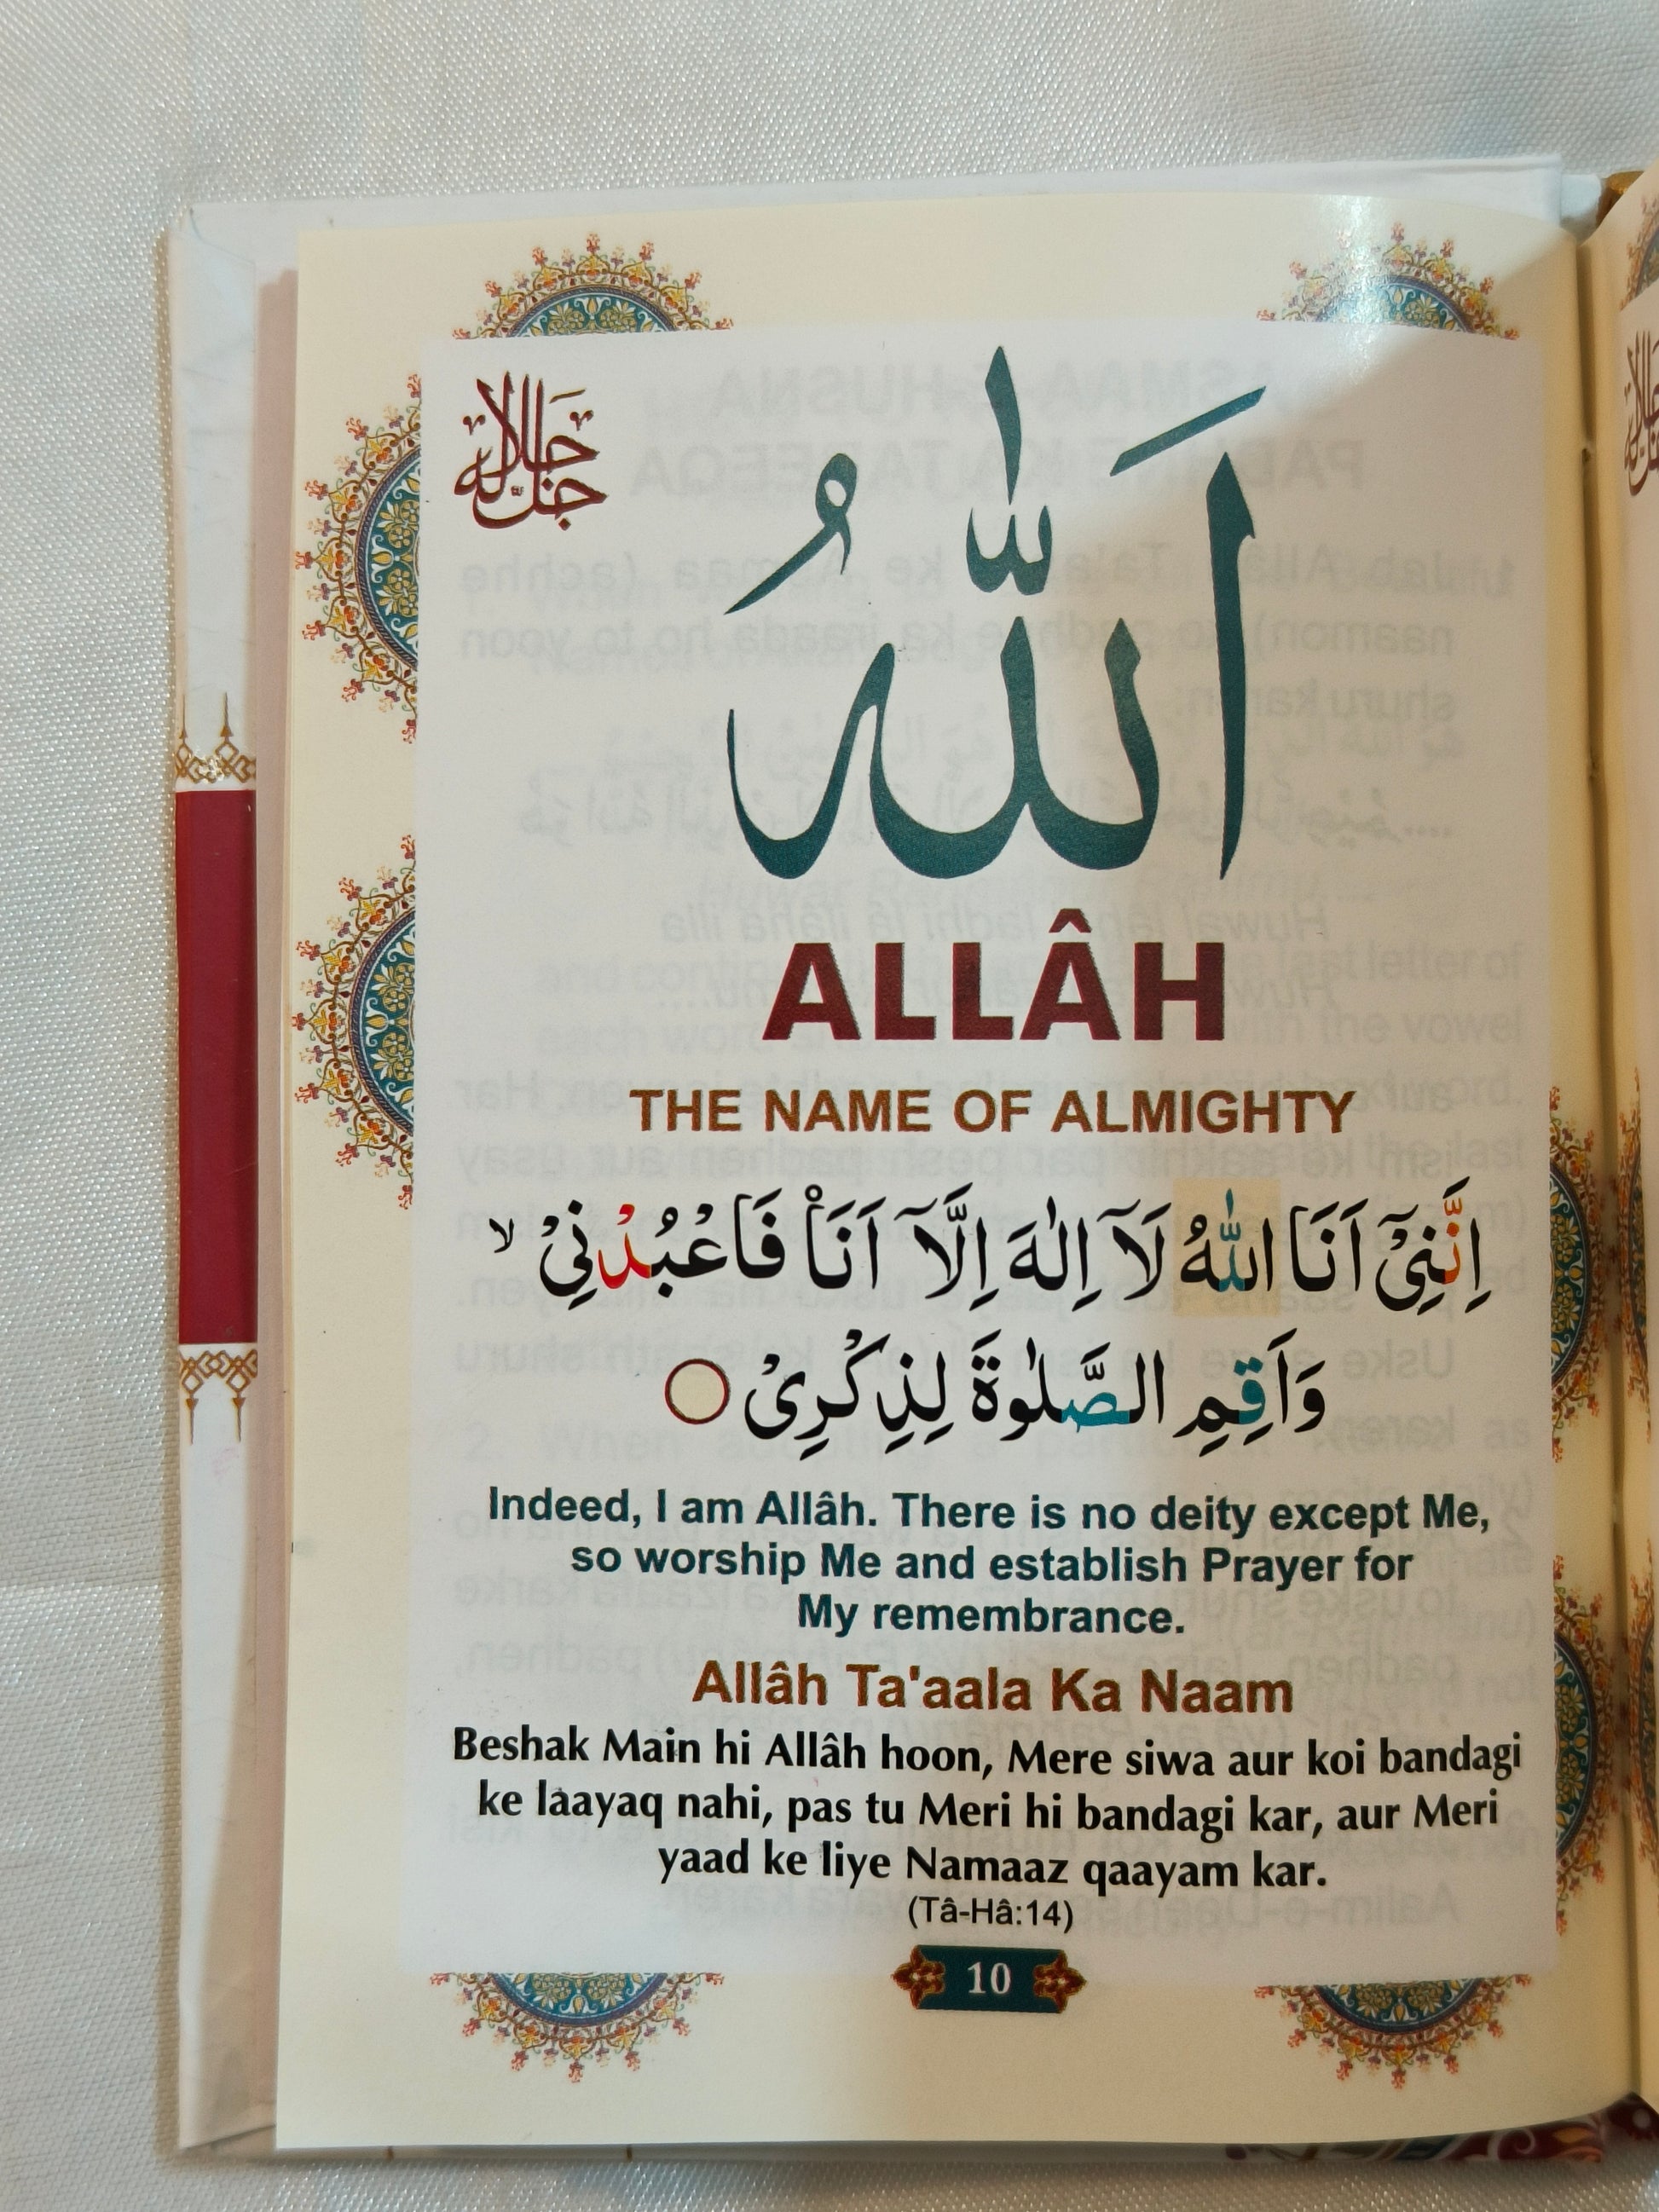 جل جلاله
اَللّٰهُ
ALLÂH
THE NAME OF ALMIGHTY
اِنَّنِیْۤ اَنَا اللّٰهُ لَاۤ اِلٰهَ اِلَّاۤ اَنَا۠ فَاعْبُدْنِیْ ۙ
وَاَقِمِ الصَّلٰوةَ لِذِكْرِیْ ○
Indeed, I am Allâh. There is no deity except Me,
so worship Me and establish Prayer for
My remembrance.
Allâh Ta'aala Ka Naam
Beshak Main hi Allâh hoon, Mere siwa aur koi bandagi
ke laayaq nahi, pas tu Meri hi bandagi kar, aur Meri
yaad ke liye Namaaz qaayam kar.
(Tâ-Hâ:14)
10